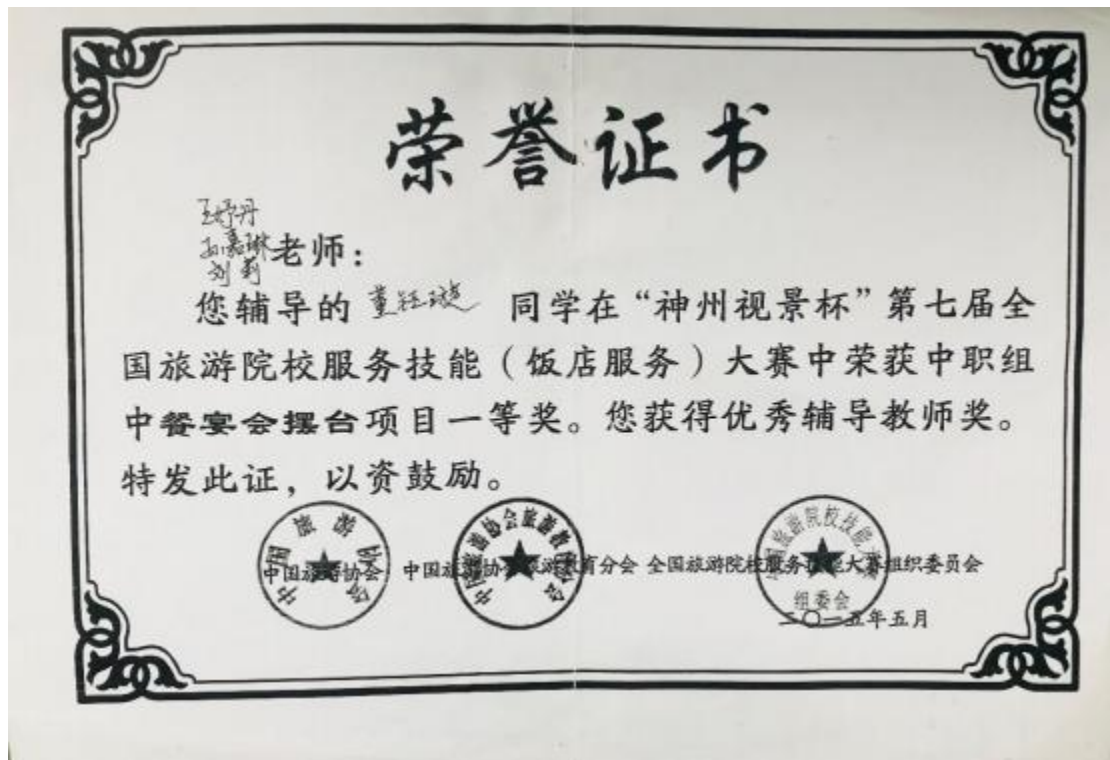 荣誉证书
王妤丹
孙嘉琳
刘莉
老师：
您辅导的 董钰璇 同学在“神州视景杯”第七届全
国旅游院校服务技能（饭店服务）大赛中荣获中职组
中餐宴会摆台项目一等奖。您获得优秀辅导教师奖。
特发此证，以资鼓励。
中国旅游协会
中国旅游协会旅游教育分会
中国旅游协会 中国旅游协会旅游教育分会 全国旅游院校服务技能大赛组织委员会
组委会
二〇一五年五月